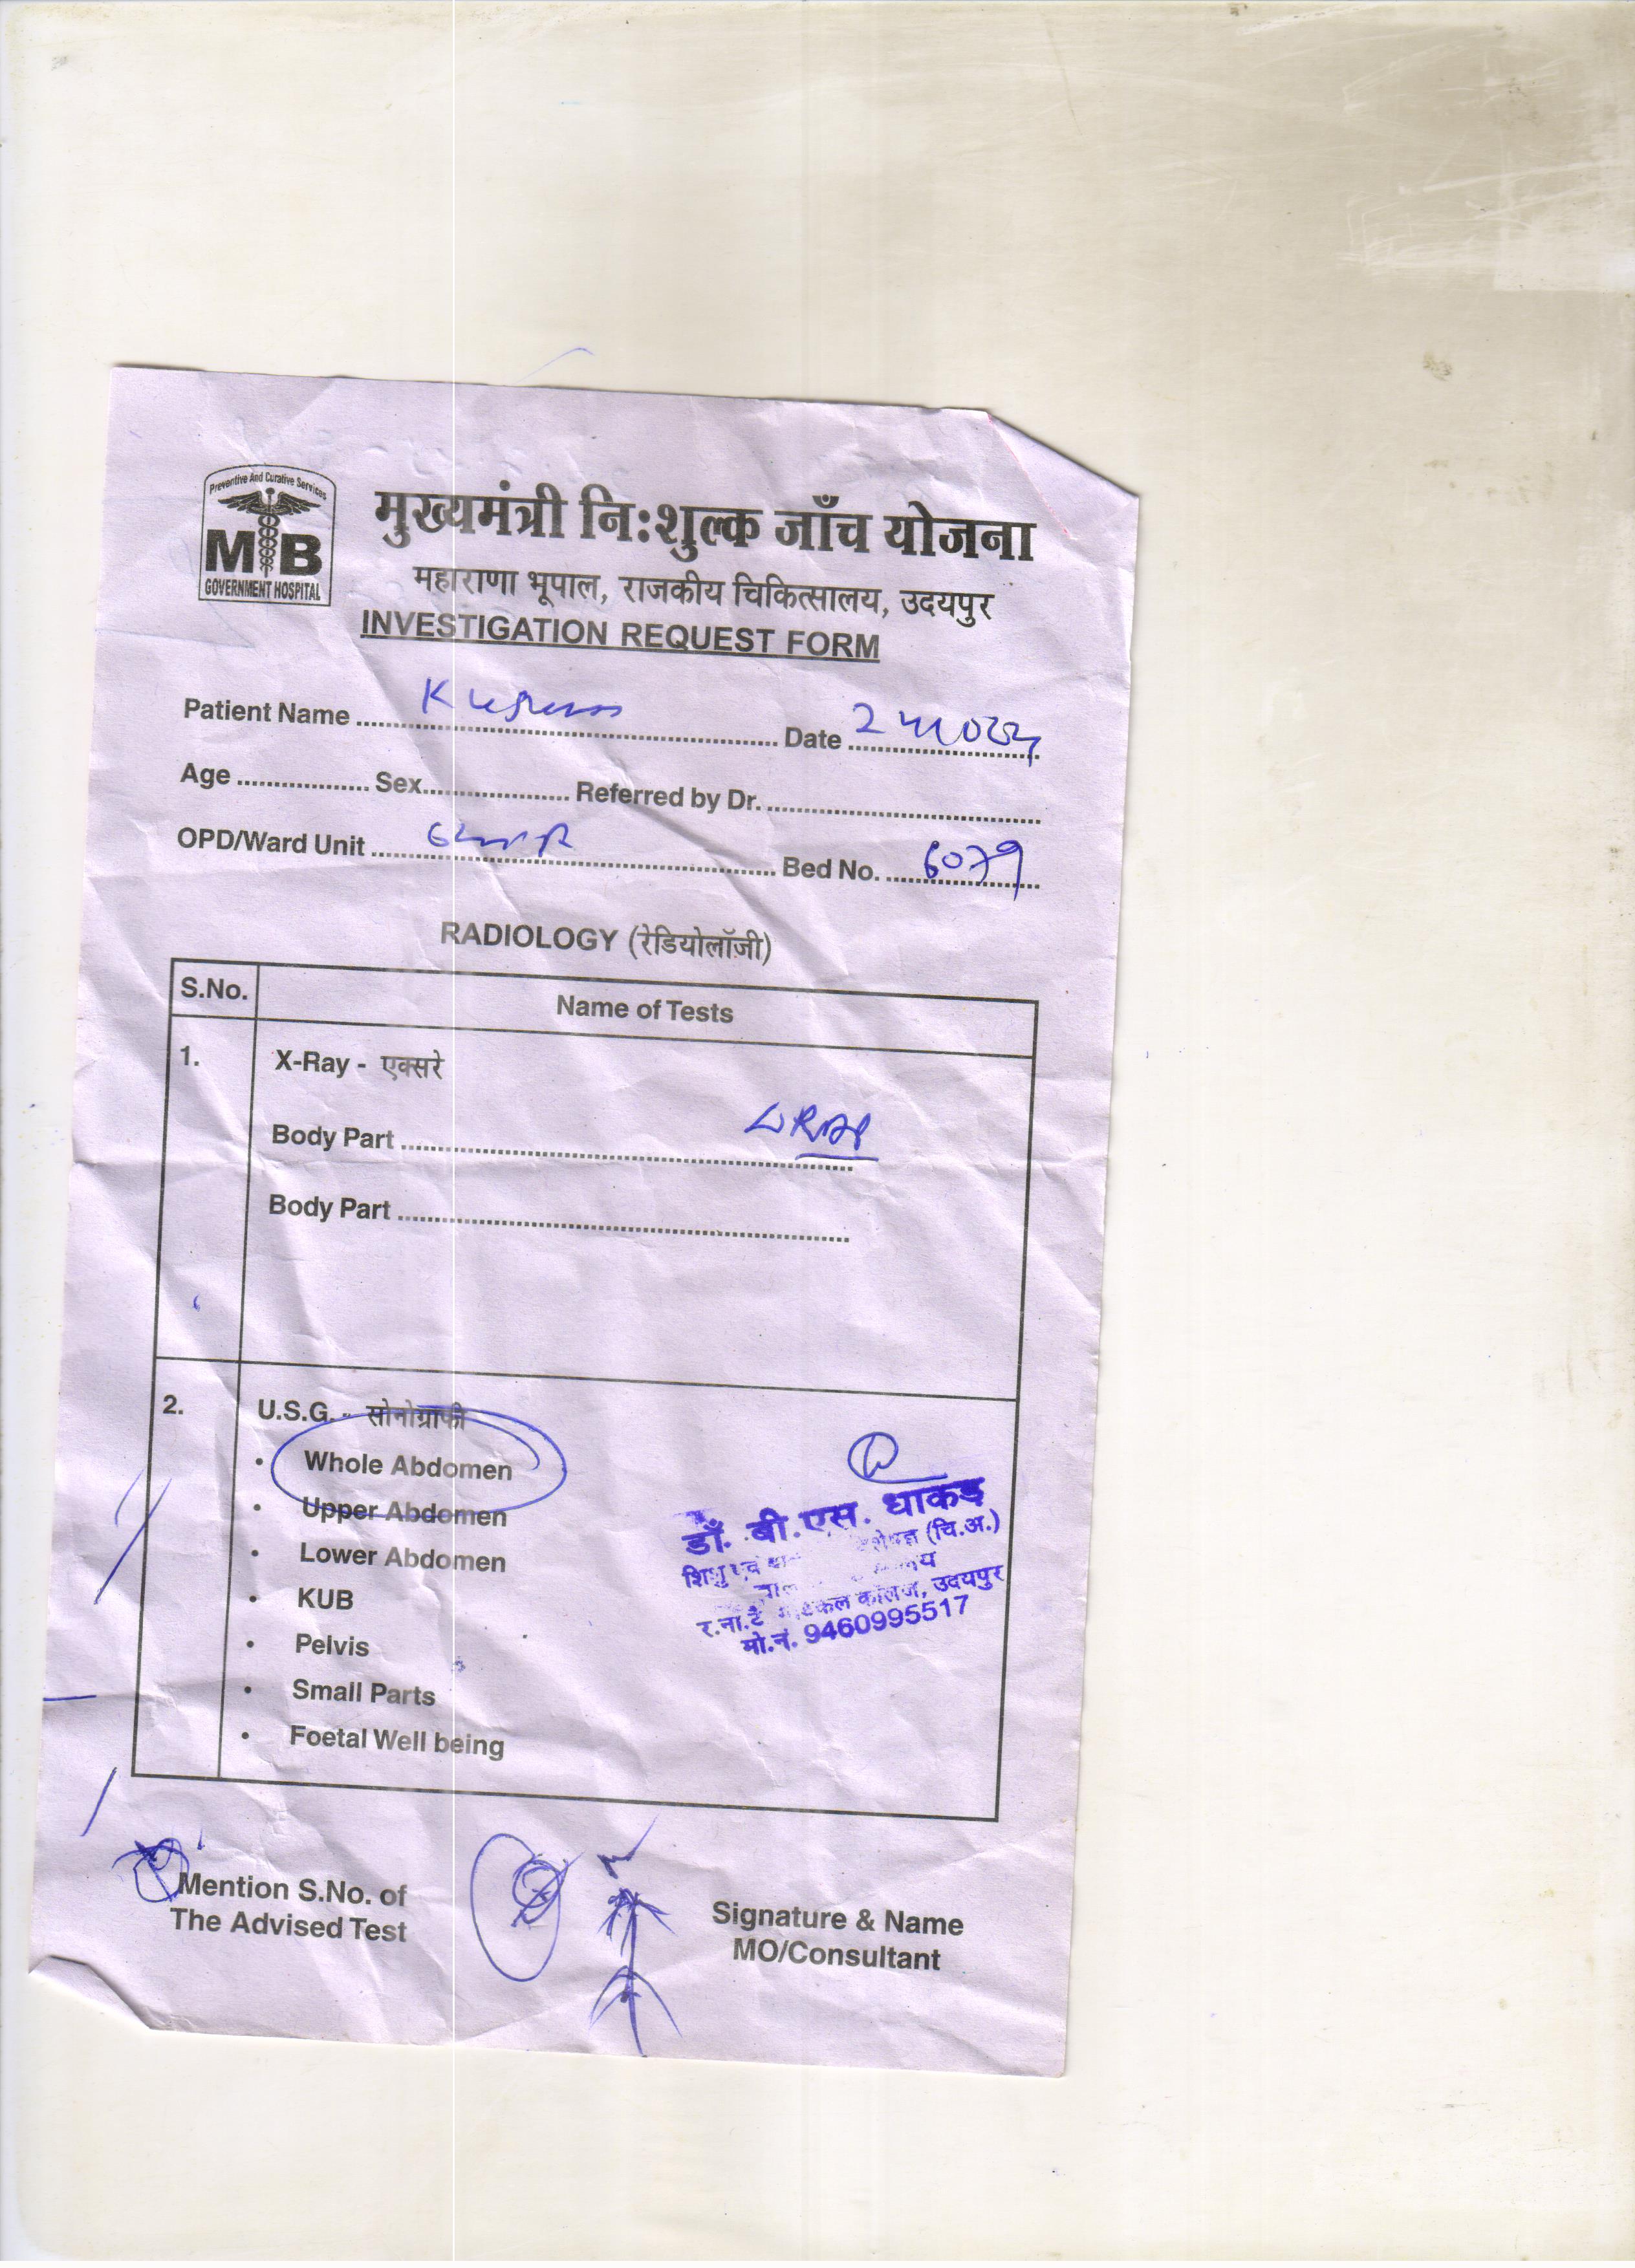 Preventive And Curative Services
MB
GOVERNMENT HOSPITAL
मुख्यमंत्री नि:शुल्क जाँच योजना
महाराणा भूपाल, राजकीय चिकित्सालय, उदयपुर
INVESTIGATION REQUEST FORM
Patient Name ........ Date ........
Age ........ Sex ........ Referred by Dr. ........
OPD/Ward Unit ........ Bed No. 6079
RADIOLOGY (रेडियोलॉजी)
S.No. Name of Tests
1. X-Ray - एक्सरे
Body Part ........
Body Part ........
2. U.S.G. - सोनोग्राफी
• Whole Abdomen
• Upper Abdomen
• Lower Abdomen
• KUB
• Pelvis
• Small Parts
• Foetal Well being
डॉ. बी.एस. धाकड़
शिशु एवं (चि.अ.)
र.ना.टै कॉलेज, उदयपुर
मो.नं. 9460995517
Mention S.No. of
The Advised Test
Signature & Name
MO/Consultant